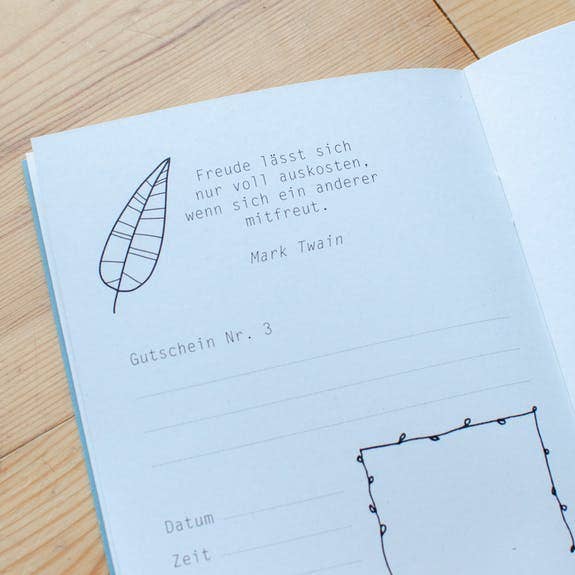 Freude lässt sich
nur voll auskosten,
wenn sich ein anderer
mitfreut.
Mark Twain
Gutschein Nr. 3
Datum
Zeit